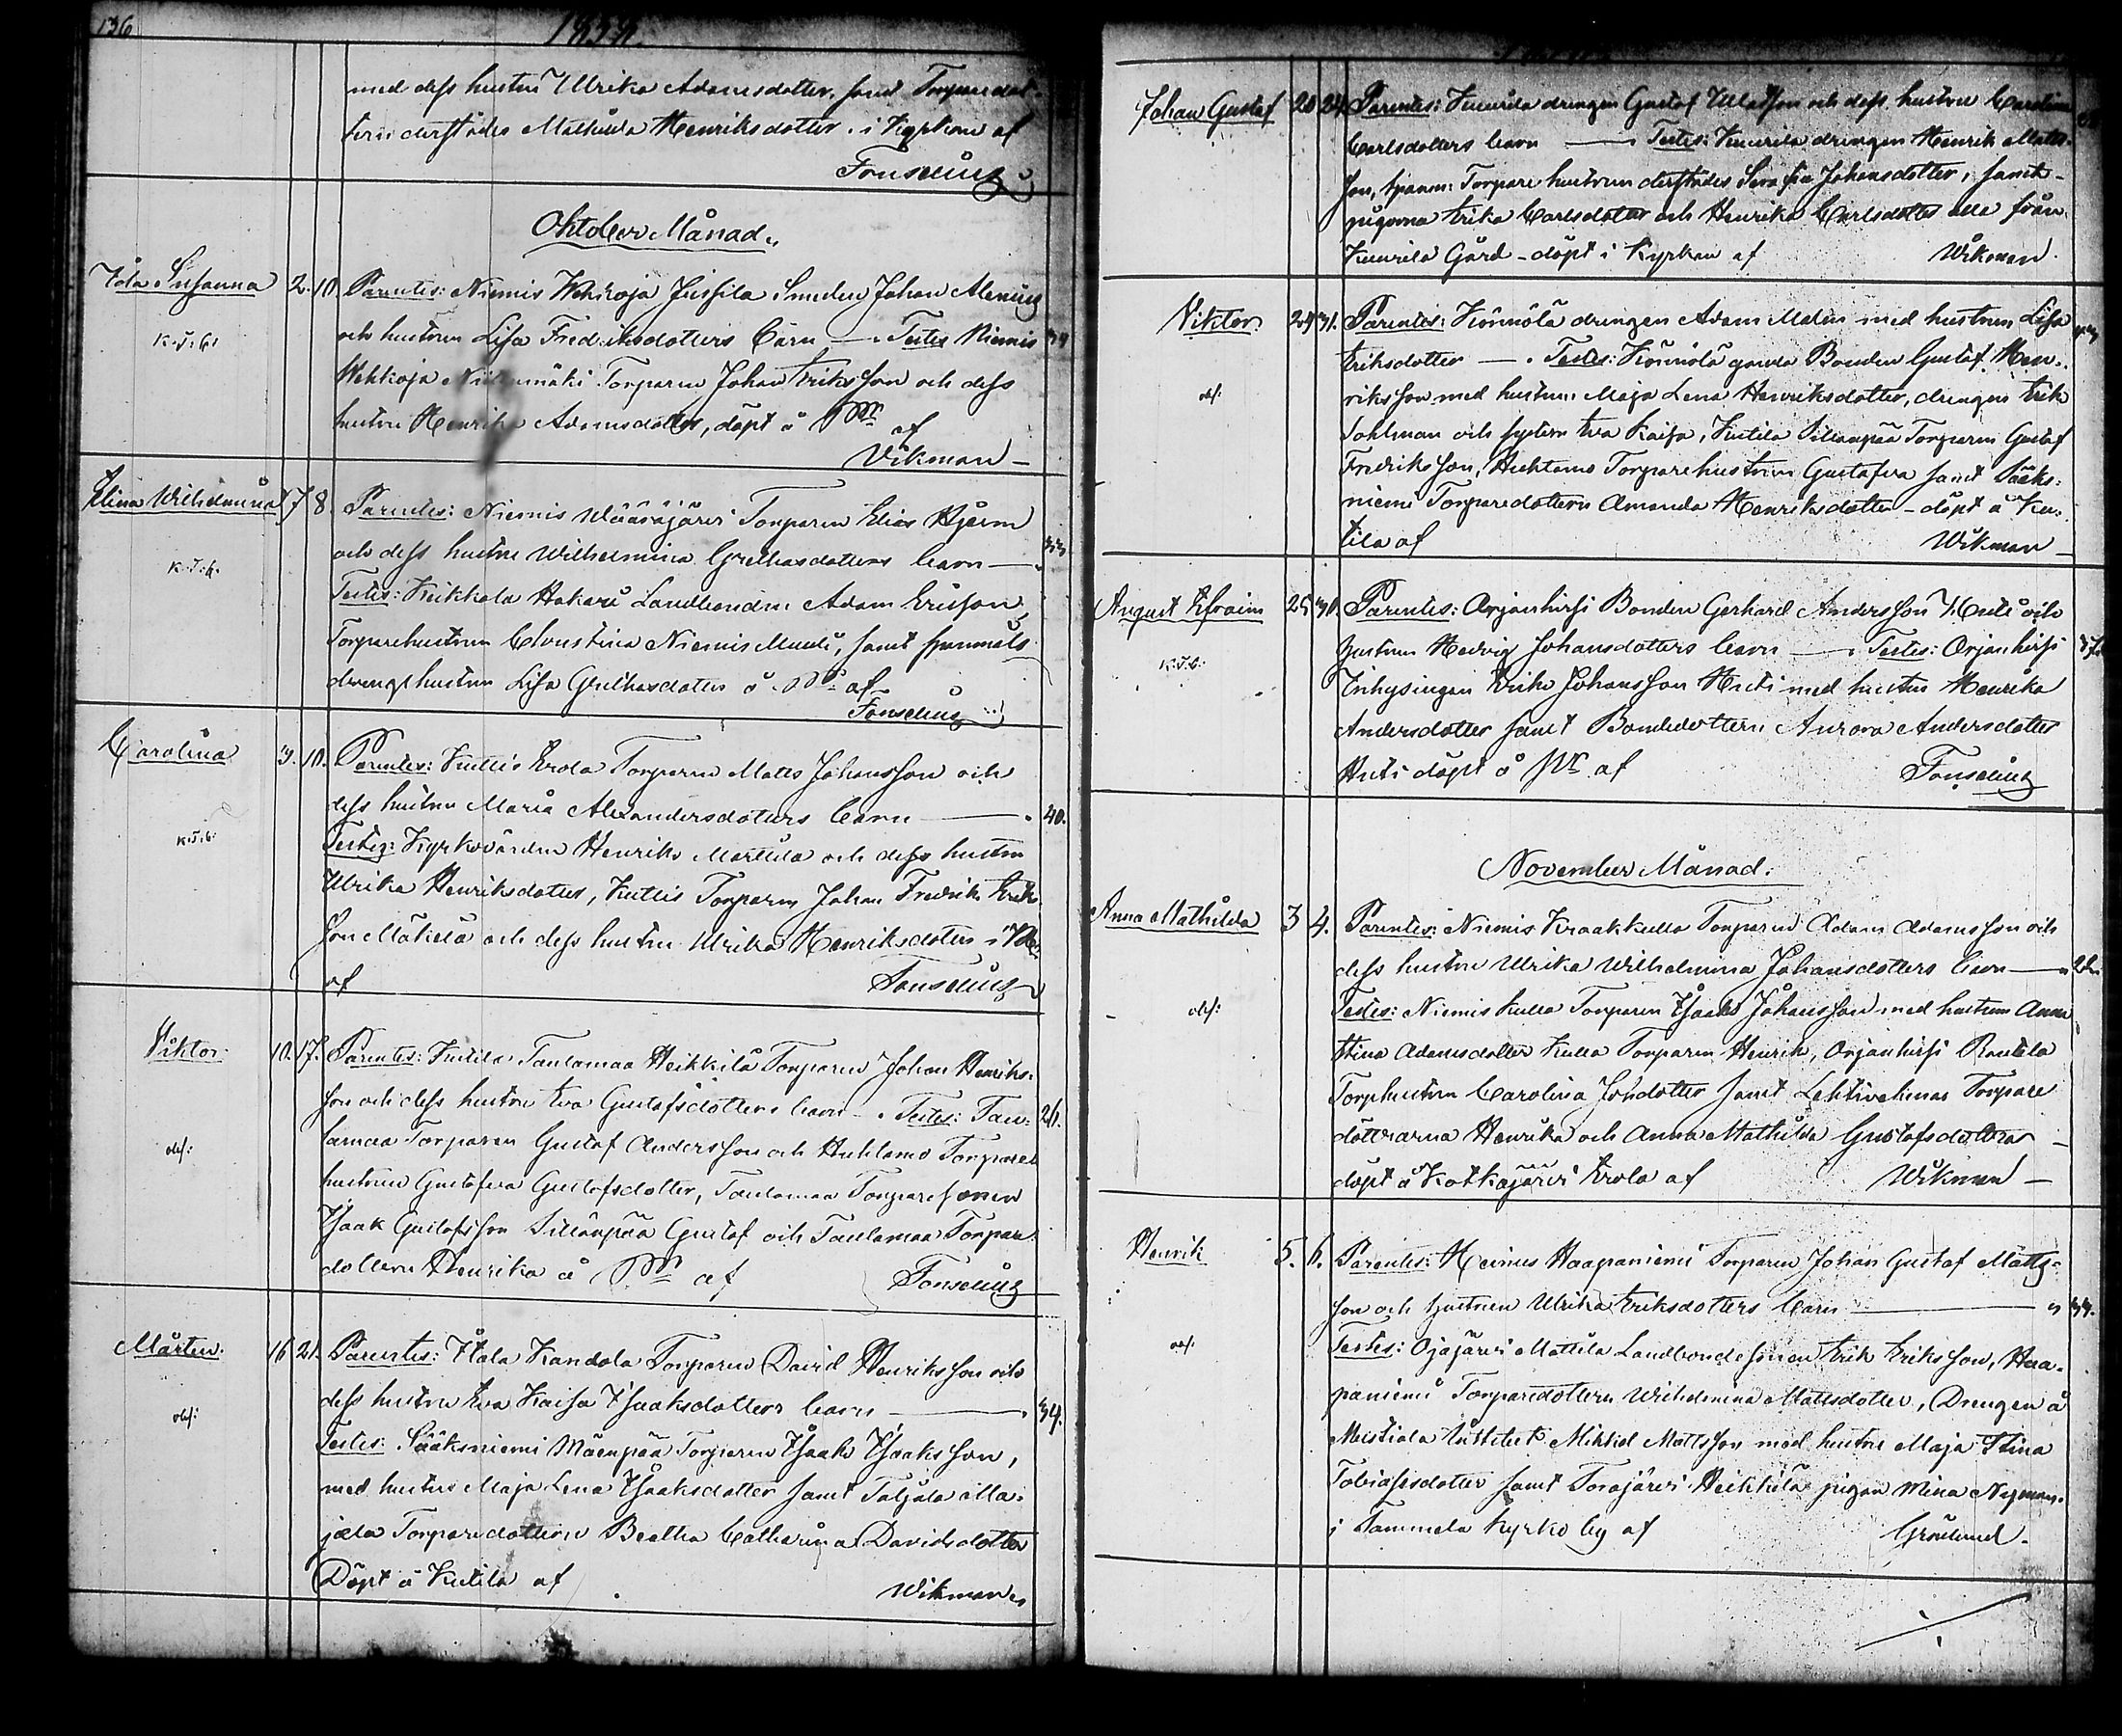 136
185
med dess hustru Ulrika Adamsdotter, samt Torparedot-
tern derstädes Mathilda Henriksdotter. i Kyrkan af
Fonselius
Oktober Månad.
Ida Susanna 2. 10. Parentes: Niemis Wehkoja Jussila Smeden Johan Alenius
och hustrun Lisa Fredriksdotters barn — . Testes Niemis
K.J.6.
Wehkoja Torparen Johan Eriksson och dess
hustru Henrika Adamsdotter, döpt å af
Vikman —
Elina Wilhelmina 7 8. Parentes: Niemis Wääräjärvi Torparen Elias Hjerm
och dess hustru Wilhelmina barn — 33
Testes: Keikkala Hakari Landbonden Adam Ericson
Torparehustrun Christina Niemis, samt
drengshustrun Lisa å af
Fonselius
Carolina 3. 10. Parentes: Kutti Erola Torparen Matts Johansson och
dess hustru Maria Alexandersdotters barn — . 40.
K.J.6.
Testes: Kyrkovärden Henrik Marttila och dess hustru
Ulrika Henriksdotter, Torparen Johan Fredrik Erik
son Mäkelä och dess hustru Ulrika Henriksdotter
af Fonselius
Viktor. 10. 17. Parentes: Kutila Taulamaa Heikkilä Torparen Johan Henriks-
son och dess hustru Eva Gustafsdotters barn — . Testes: Tau- 26.
lamaa Torparen Gustaf Andersson och Huhtamo Torpare
hustrun Gustafva Gustafsdotter, Taulamaa Torparesonen
Isaak Gustafsson Sillanpää Gustaf och Taulamaa Torpare
dottern Henrika å af Fonselius
Mårten. 16 21. Parentes: Kandola Torparen David Henriksson och
dess hustru Eva Kaisa Isaaksdotters barn — . 34.
Testes: Sääksniemi Mäenpää Torparen Isaak Isaaksson,
med hustru Maja Lena Isaaksdotter samt Taljala Ma-
jala Torparedottern Beatha Catharina Davidsdotter
Döpt å Kutila af Wikman
Johan Gustaf 20 24. Parentes: Kuurila drengen Gustaf och dess hustru Carolina
Carlsdotters barn — Testes: Kuurila drengen Henrik Matts-
son, Torpare hustrun derstädes Serafia Johansdotter, samt
pigorna Erika Carlsdotter och Henrika Carlsdotter alla från
Kuurila Gård - döpt i Kyrkan af Wikman.
Viktor. 24 31. Parentes: Könnölä drengen Adam Malin med hustrun Lisa
Eriksdotter — . Testes: Könnölä gamla Bonden Gustaf Hen-
riksson med hustru Maja Lena Henriksdotter, drengen Erik
Sohlman och systern Eva Kaisa, Kutila Sillanpää Torparen Gustaf
Fredriksson, Huhtamo Torparehustrun Gustafva samt Sääks-
niemi Torparedottern Amanda Henriksdotter - döpt å Ku-
tila af Wikman —
August Efraim 25 31. Parentes: Orjanhirsi Bonden Gerhard Andersson Huti och
hustrun Hedvig Johansdotters barn — . Testes: Orjanhirsi 37.
K.J.6.
Inhysingen Erik Johansson Huti med hustru Henrika
Andersdotter samt Bondedottern Aurora Andersdotter
Huti döpt å af Fonselius
November Månad.
Anna Mathilda 3 4. Parentes: Niemis Kraakkulla Torparen Adam Adamsson och
dess hustru Ulrika Wilhelmina Johansdotters barn — 22.
Testes: Niemis Kulla Torparen Isaak Johansson med hustrun Anna
Stina Adamsdotter Kulla Torparen Henrik, Orjanhirsi Rautela
Torphustrun Carolina Johsdotter samt Torpare
döttrarna Henrika och Anna Mathilda Gustafsdöttrar —
döpt å Kotkajärvi Erola af Wikman —
Henrik 5. 6. Parentes: Heinus Haapaniemi Torparen Johan Gustaf Matts-
son och hustrun Ulrika Eriksdotters barn — 34.
Testes: Ojajärvi Mattila Landbondesonen Erik Eriksson, Haa-
paniemi Torparedottern Wilhelmina Mattsdotter, Drengen å
Mustiala Institut Mikkel Mattsson med hustru Maja Stina
Tobiasdotter samt Torajärvi Heikkilä pigan Mina Nyman
i Tammela Kyrko by af Grönlund.